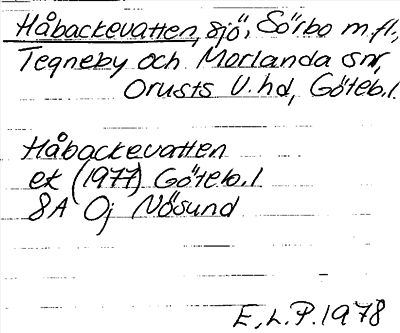 Håbackevatten, sjö, Sörbo m.fl.,
Tegneby och Morlanda snr,
Orusts V.hd, Göteb.l.
Håbackevatten
ek (1977) Göteb.l
8A Oj Nösund
E.L.P.1978